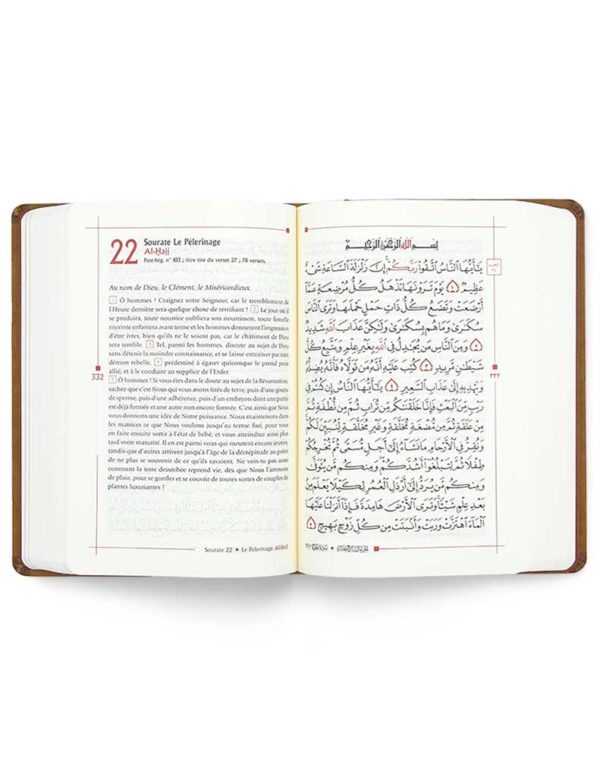 22
Sourate Le Pèlerinage
Al-Ḥajj
Post-hég. n° 103 ; titre tiré du verset 27 ; 78 versets.
Au nom de Dieu, le Clément, le Miséricordieux.
1 Ô hommes ! Craignez votre Seigneur, car le tremblement de
l'Heure dernière sera quelque chose de terrifiant ! 2 Le jour où il
se produira, toute nourrice oubliera son nourrisson, toute femelle
enceinte enfantera avant terme et les hommes donneront l'impression
d'être ivres, bien qu'ils ne le soient pas, car le châtiment de Dieu
sera terrible. 3 Tel, parmi les hommes, discute au sujet de Dieu
sans détenir la moindre connaissance, et se laisse entraîner par tout
démon rebelle, 4 prédestiné à égarer quiconque le prend pour
allié, et à le conduire au supplice de l'Enfer.
5 Ô hommes ! Si vous êtes dans le doute au sujet de la Résurrection,
sachez que c'est Nous qui vous avons tirés de terre, puis d'une goutte
de sperme, puis d'une adhérence, puis d'un embryon dont une partie est
déjà formée et une autre non encore formée. C'est ainsi que Nous
vous donnons une idée de Notre puissance. Nous maintenons dans
les matrices ce que Nous voulons jusqu'au terme fixé, pour vous
en faire ensuite sortir à l'état de bébé, et vous atteindrez ainsi plus
tard votre maturité. Il en est parmi vous qui meurent encore jeunes,
tandis que d'autres arrivent jusqu'à l'âge de la décrépitude au point
de ne plus se souvenir de ce qu'ils savaient. Ne vois-tu pas
comment la terre desséchée reprend vie, dès que Nous l'arrosons
de pluie, pour se gonfler et se couvrir de toutes sortes de couples de
plantes luxuriantes !
332
Sourate 22 • Le Pèlerinage Al-Ḥajj
بِسْمِ اللَّهِ الرَّحْمَٰنِ الرَّحِيمِ
يَٰٓأَيُّهَا ٱلنَّاسُ ٱتَّقُوا۟ رَبَّكُمْ ۚ إِنَّ زَلْزَلَةَ ٱلسَّاعَةِ شَىْءٌ
عَظِيمٌ ١ يَوْمَ تَرَوْنَهَا تَذْهَلُ كُلُّ مُرْضِعَةٍ عَمَّآ
أَرْضَعَتْ وَتَضَعُ كُلُّ ذَاتِ حَمْلٍ حَمْلَهَا وَتَرَى ٱلنَّاسَ
سُكَٰرَىٰ وَمَا هُم بِسُكَٰرَىٰ وَلَٰكِنَّ عَذَابَ ٱللَّهِ شَدِيدٌ
٢ وَمِنَ ٱلنَّاسِ مَن يُجَٰدِلُ فِى ٱللَّهِ بِغَيْرِ عِلْمٍ وَيَتَّبِعُ كُلَّ
شَيْطَٰنٍ مَّرِيدٍ ٣ كُتِبَ عَلَيْهِ أَنَّهُۥ مَن تَوَلَّاهُ فَأَنَّهُۥ يُضِلُّهُۥ
وَيَهْدِيهِ إِلَىٰ عَذَابِ ٱلسَّعِيرِ ٤ يَٰٓأَيُّهَا ٱلنَّاسُ إِن كُنتُمْ فِى
رَيْبٍ مِّنَ ٱلْبَعْثِ فَإِنَّا خَلَقْنَٰكُم مِّن تُرَابٍ ثُمَّ مِن نُّطْفَةٍ ثُمَّ
مِنْ عَلَقَةٍ ثُمَّ مِن مُّضْغَةٍ مُّخَلَّقَةٍ وَغَيْرِ مُخَلَّقَةٍ لِّنُبَيِّنَ لَكُمْ
وَنُقِرُّ فِى ٱلْأَرْحَامِ مَا نَشَآءُ إِلَىٰٓ أَجَلٍ مُّسَمًّى ثُمَّ نُخْرِجُكُمْ
طِفْلًا ثُمَّ لِتَبْلُغُوٓا۟ أَشُدَّكُمْ وَمِنكُم مَّن يُتَوَفَّىٰ
وَمِنكُم مَّن يُرَدُّ إِلَىٰٓ أَرْذَلِ ٱلْعُمُرِ لِكَيْلَا يَعْلَمَ مِنۢ
بَعْدِ عِلْمٍ شَيْـًٔا وَتَرَى ٱلْأَرْضَ هَامِدَةً فَإِذَآ أَنزَلْنَا عَلَيْهَا
ٱلْمَآءَ ٱهْتَزَّتْ وَرَبَتْ وَأَنۢبَتَتْ مِن كُلِّ زَوْجٍۭ بَهِيجٍ ٥
٣٣٢